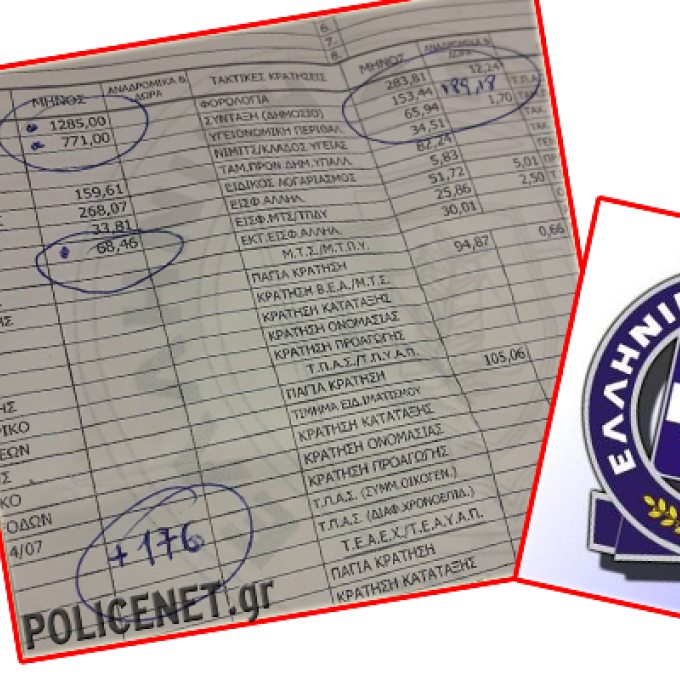 6.
7.
8.
ΜΗΝΟΣ ΑΝΑΔΡΟΜΙΚΑ & ΔΩΡΑ ΤΑΚΤΙΚΕΣ ΚΡΑΤΗΣΕΙΣ ΜΗΝΟΣ ΑΝΑΔΡΟΜΙΚΑ & ΔΩΡΑ
1285,00 ΦΟΡΟΛΟΓΙΑ 283,81 12,24
771,00 ΣΥΝΤΑΞΗ (ΔΗΜΟΣΙΟ) 153,44 189,18 Τ.Π.Α.Σ
ΥΓΕΙΟΝΟΜΙΚΗ ΠΕΡΙΘΑΛ. 65,94 1,70
ΝΙΜΙΤΣ/ΚΛΑΔΟΣ ΥΓΕΙΑΣ 34,51 ΤΑΚ.
159,61 ΤΑΜ.ΠΡΟΝ.ΔΗΜ.ΥΠΑΛΛ. 82,24 ΤΑΚ.
268,07 ΕΙΔΙΚΟΣ ΛΟΓΑΡΙΑΣΜΟΣ 5,83
33,81 ΕΙΣΦ.ΑΛΛΗΛ. 51,72 5,01
68,46 ΕΙΣΦ.ΜΤΣ/ΤΠΔΥ 25,86 2,50
ΕΚΤ.ΕΙΣΦ.ΑΛΛΗΛ. 30,01
Μ.Τ.Σ./Μ.Τ.Π.Υ.
ΠΑΓΙΑ ΚΡΑΤΗΣΗ 94,87 0,66
ΚΡΑΤΗΣΗ Β.Ε.Α./Μ.Τ.Σ.
ΚΡΑΤΗΣΗ ΚΑΤΑΤΑΞΗΣ
ΗΣ ΚΡΑΤΗΣΗ ΟΝΟΜΑΣΙΑΣ
ΚΡΑΤΗΣΗ ΠΡΟΑΓΩΓΗΣ
Τ.Π.Α.Σ./Τ.Π.Υ.Α.Π.
ΠΑΓΙΑ ΚΡΑΤΗΣΗ 105,06
ΗΣ ΤΙΜΗΜΑ ΕΙΔ.ΙΜΑΤΙΣΜΟΥ
ΡΙΚΟ ΚΡΑΤΗΣΗ ΚΑΤΑΤΑΞΗΣ
ΕΩΝ ΚΡΑΤΗΣΗ ΟΝΟΜΑΣΙΑΣ
Σ ΚΡΑΤΗΣΗ ΠΡΟΑΓΩΓΗΣ
ΚΟ Τ.Π.Α.Σ. (ΣΥΜΜ.ΟΙΚΟΓΕΝ.)
ΟΔΩΝ Τ.Π.Α.Σ. (ΔΙΑΦ.ΧΡΟΝΟΕΠΙΔ.)
4/07 +176 Τ.Ε.Α.Ε.Χ./Τ.Ε.Α.Υ.Α.Π.
ΠΑΓΙΑ ΚΡΑΤΗΣΗ
ΚΡΑΤΗΣΗ ΚΑΤΑΤΑΞΗΣ
POLICENET.gr
ΕΛΛΗΝΙ